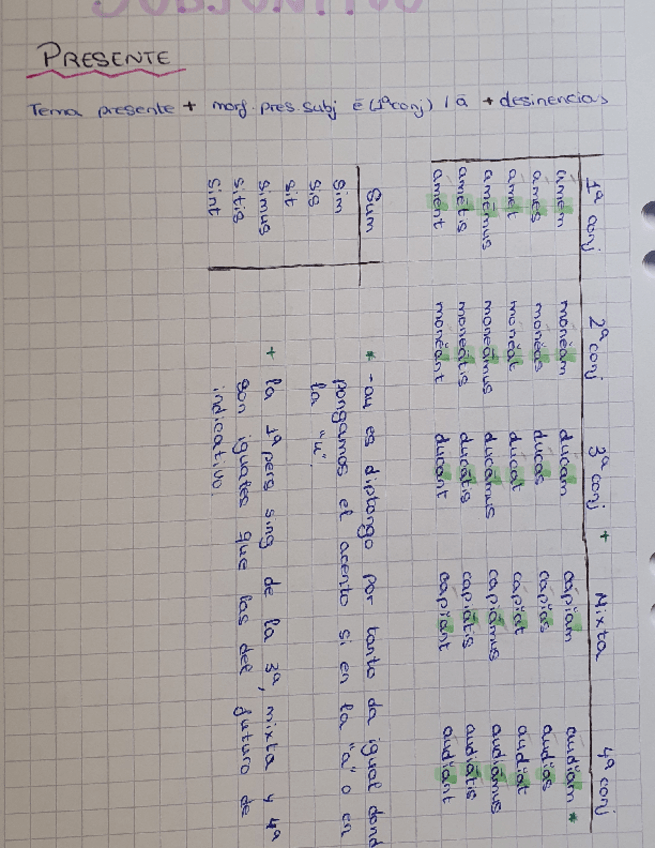 SUBJUNTIVO
PRESENTE
Tema presente + morf. pres. subj ē (1ªconj) / ā + desinencias
1ª conj 2ª conj 3ª conj + Mixta 4ª conj
ámem monéam dúcam cápiam áudiam *
ámes monéas dúcas cápias áudias
ámet monéat dúcat cápiat áudiat
amémus moneámus ducámus capiámus audiámus
amétis moneátis ducátis capiátis audiátis
áment monéant dúcant cápiant áudiant
Sum
sim
sis
sit
simus
sitis
sint
* -au es diptongo por tanto da igual dond
pongamos el acento si en la "a" o en
la "u".
+ la 1ª pers sing de la 3ª, mixta y 4ª
son iguales que las del futuro de
indicativo.